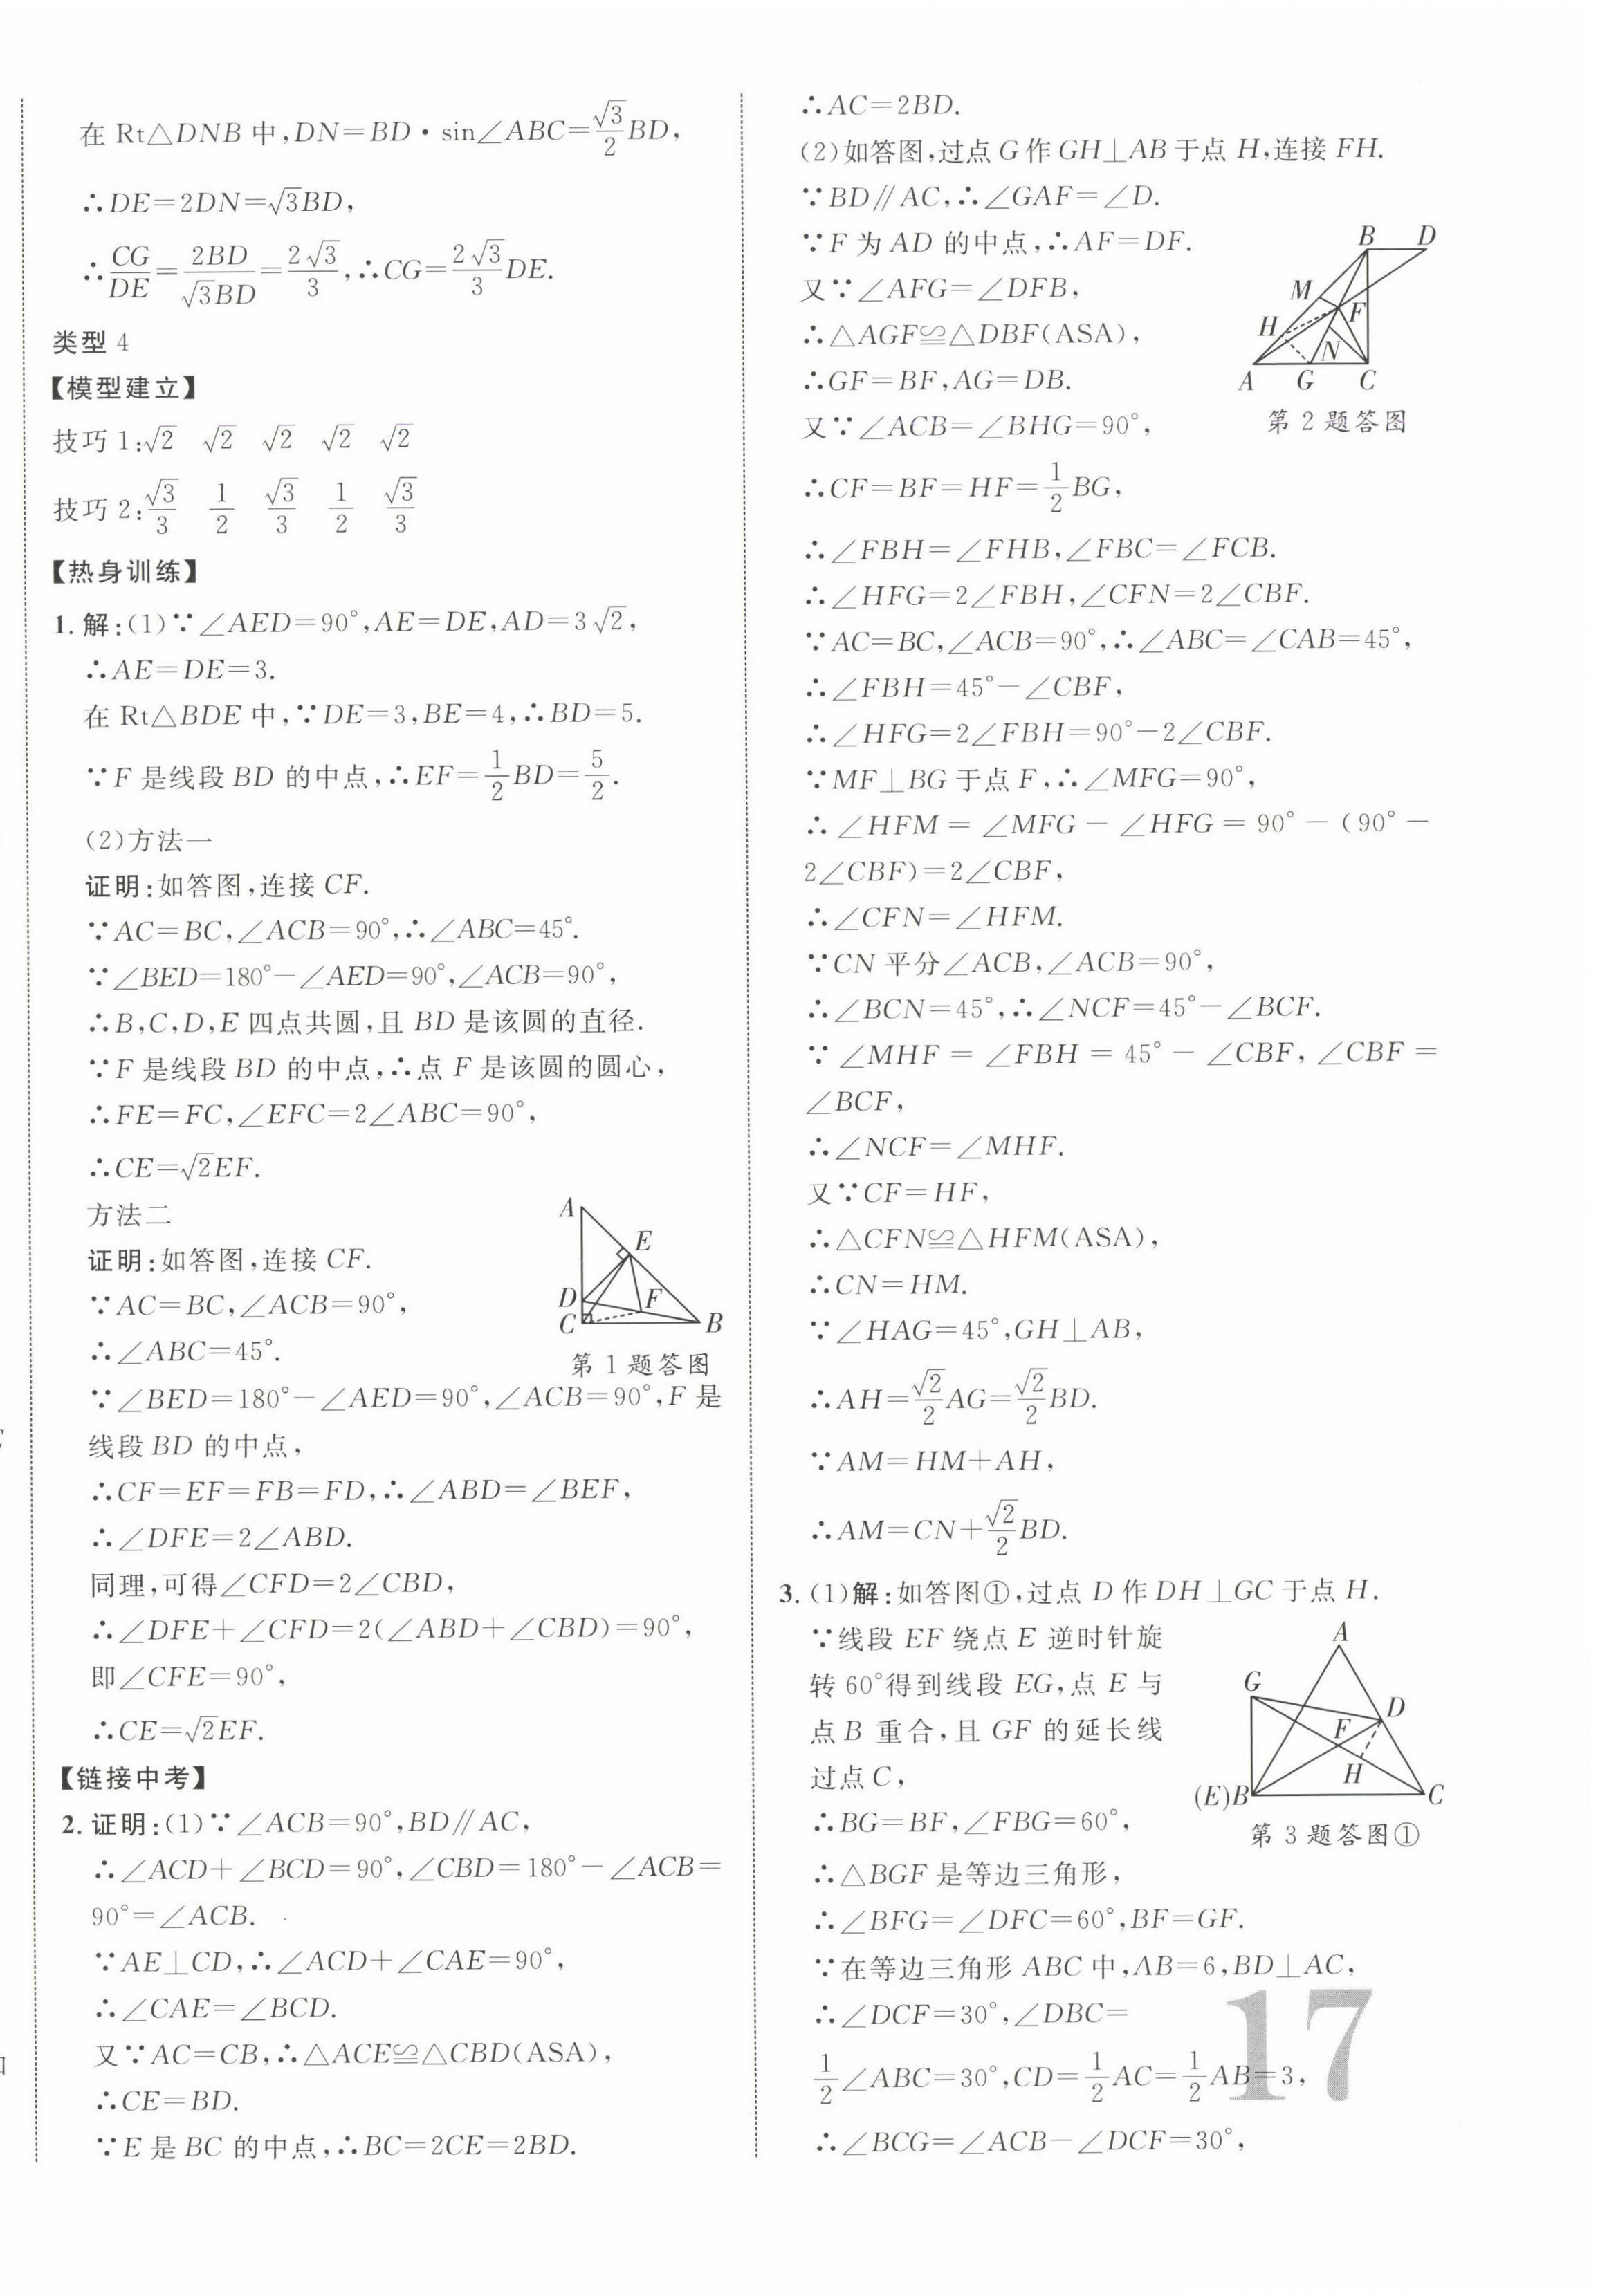 在 Rt△DNB 中,DN=BD·sin∠ABC=√3/2 BD,
∴DE=2DN=√3BD,
∴CG/DE=2BD/√3BD=2√3/3,∴CG=2√3/3 DE.
类型 4
【模型建立】
技巧 1:√2 √2 √2 √2 √2
技巧 2:√3/3 1/2 √3/3 1/2 √3/3
【热身训练】
1. 解:(1)∵∠AED=90°,AE=DE,AD=3√2,
∴AE=DE=3.
在 Rt△BDE 中,∵DE=3,BE=4,∴BD=5.
∵F 是线段 BD 的中点,∴EF=1/2 BD=5/2.
(2)方法一
证明:如答图,连接 CF.
∵AC=BC,∠ACB=90°,∴∠ABC=45°.
∵∠BED=180°-∠AED=90°,∠ACB=90°,
∴B,C,D,E 四点共圆,且 BD 是该圆的直径.
∵F 是线段 BD 的中点,∴点 F 是该圆的圆心,
∴FE=FC,∠EFC=2∠ABC=90°,
∴CE=√2EF.
方法二
证明:如答图,连接 CF.
∵AC=BC,∠ACB=90°,
∴∠ABC=45°.
A
E
D
F
C
B
第 1 题答图
∵∠BED=180°-∠AED=90°,∠ACB=90°,F 是
线段 BD 的中点,
∴CF=EF=FB=FD,∴∠ABD=∠BEF,
∴∠DFE=2∠ABD.
同理,可得∠CFD=2∠CBD,
∴∠DFE+∠CFD=2(∠ABD+∠CBD)=90°,
即∠CFE=90°,
∴CE=√2EF.
【链接中考】
2. 证明:(1)∵∠ACB=90°,BD∥AC,
∴∠ACD+∠BCD=90°,∠CBD=180°-∠ACB=
90°=∠ACB.
∵AE⊥CD,∴∠ACD+∠CAE=90°,
∴∠CAE=∠BCD.
又∵AC=CB,∴△ACE≌△CBD(ASA),
∴CE=BD.
∵E 是 BC 的中点,∴BC=2CE=2BD.
∴AC=2BD.
(2)如答图,过点 G 作 GH⊥AB 于点 H,连接 FH.
∵BD∥AC,∴∠GAF=∠D.
∵F 为 AD 的中点,∴AF=DF.
又∵∠AFG=∠DFB,
∴△AGF≌△DBF(ASA),
∴GF=BF,AG=DB.
又∵∠ACB=∠BHG=90°,
B D
M
F
H
N
A G C
第 2 题答图
∴CF=BF=HF=1/2 BG,
∴∠FBH=∠FHB,∠FBC=∠FCB.
∴∠HFG=2∠FBH,∠CFN=2∠CBF.
∵AC=BC,∠ACB=90°,∴∠ABC=∠CAB=45°,
∴∠FBH=45°-∠CBF,
∴∠HFG=2∠FBH=90°-2∠CBF.
∵MF⊥BG 于点 F,∴∠MFG=90°,
∴∠HFM=∠MFG-∠HFG=90°-(90°-
2∠CBF)=2∠CBF,
∴∠CFN=∠HFM.
∵CN 平分∠ACB,∠ACB=90°,
∴∠BCN=45°,∴∠NCF=45°-∠BCF.
∵∠MHF=∠FBH=45°-∠CBF,∠CBF=
∠BCF,
∴∠NCF=∠MHF.
又∵CF=HF,
∴△CFN≌△HFM(ASA),
∴CN=HM.
∵∠HAG=45°,GH⊥AB,
∴AH=√2/2 AG=√2/2 BD.
∵AM=HM+AH,
∴AM=CN+√2/2 BD.
3. (1)解:如答图①,过点 D 作 DH⊥GC 于点 H.
∵线段 EF 绕点 E 逆时针旋
转 60°得到线段 EG,点 E 与
点 B 重合,且 GF 的延长线
过点 C,
∴BG=BF,∠FBG=60°,
∴△BGF 是等边三角形,
A
G
D
F
H
(E)B
C
第 3 题答图①
∴∠BFG=∠DFC=60°,BF=GF.
∵在等边三角形 ABC 中,AB=6,BD⊥AC,
∴∠DCF=30°,∠DBC=
1/2∠ABC=30°,CD=1/2 AC=1/2 AB=3,
∴∠BCG=∠ACB-∠DCF=30°,
17